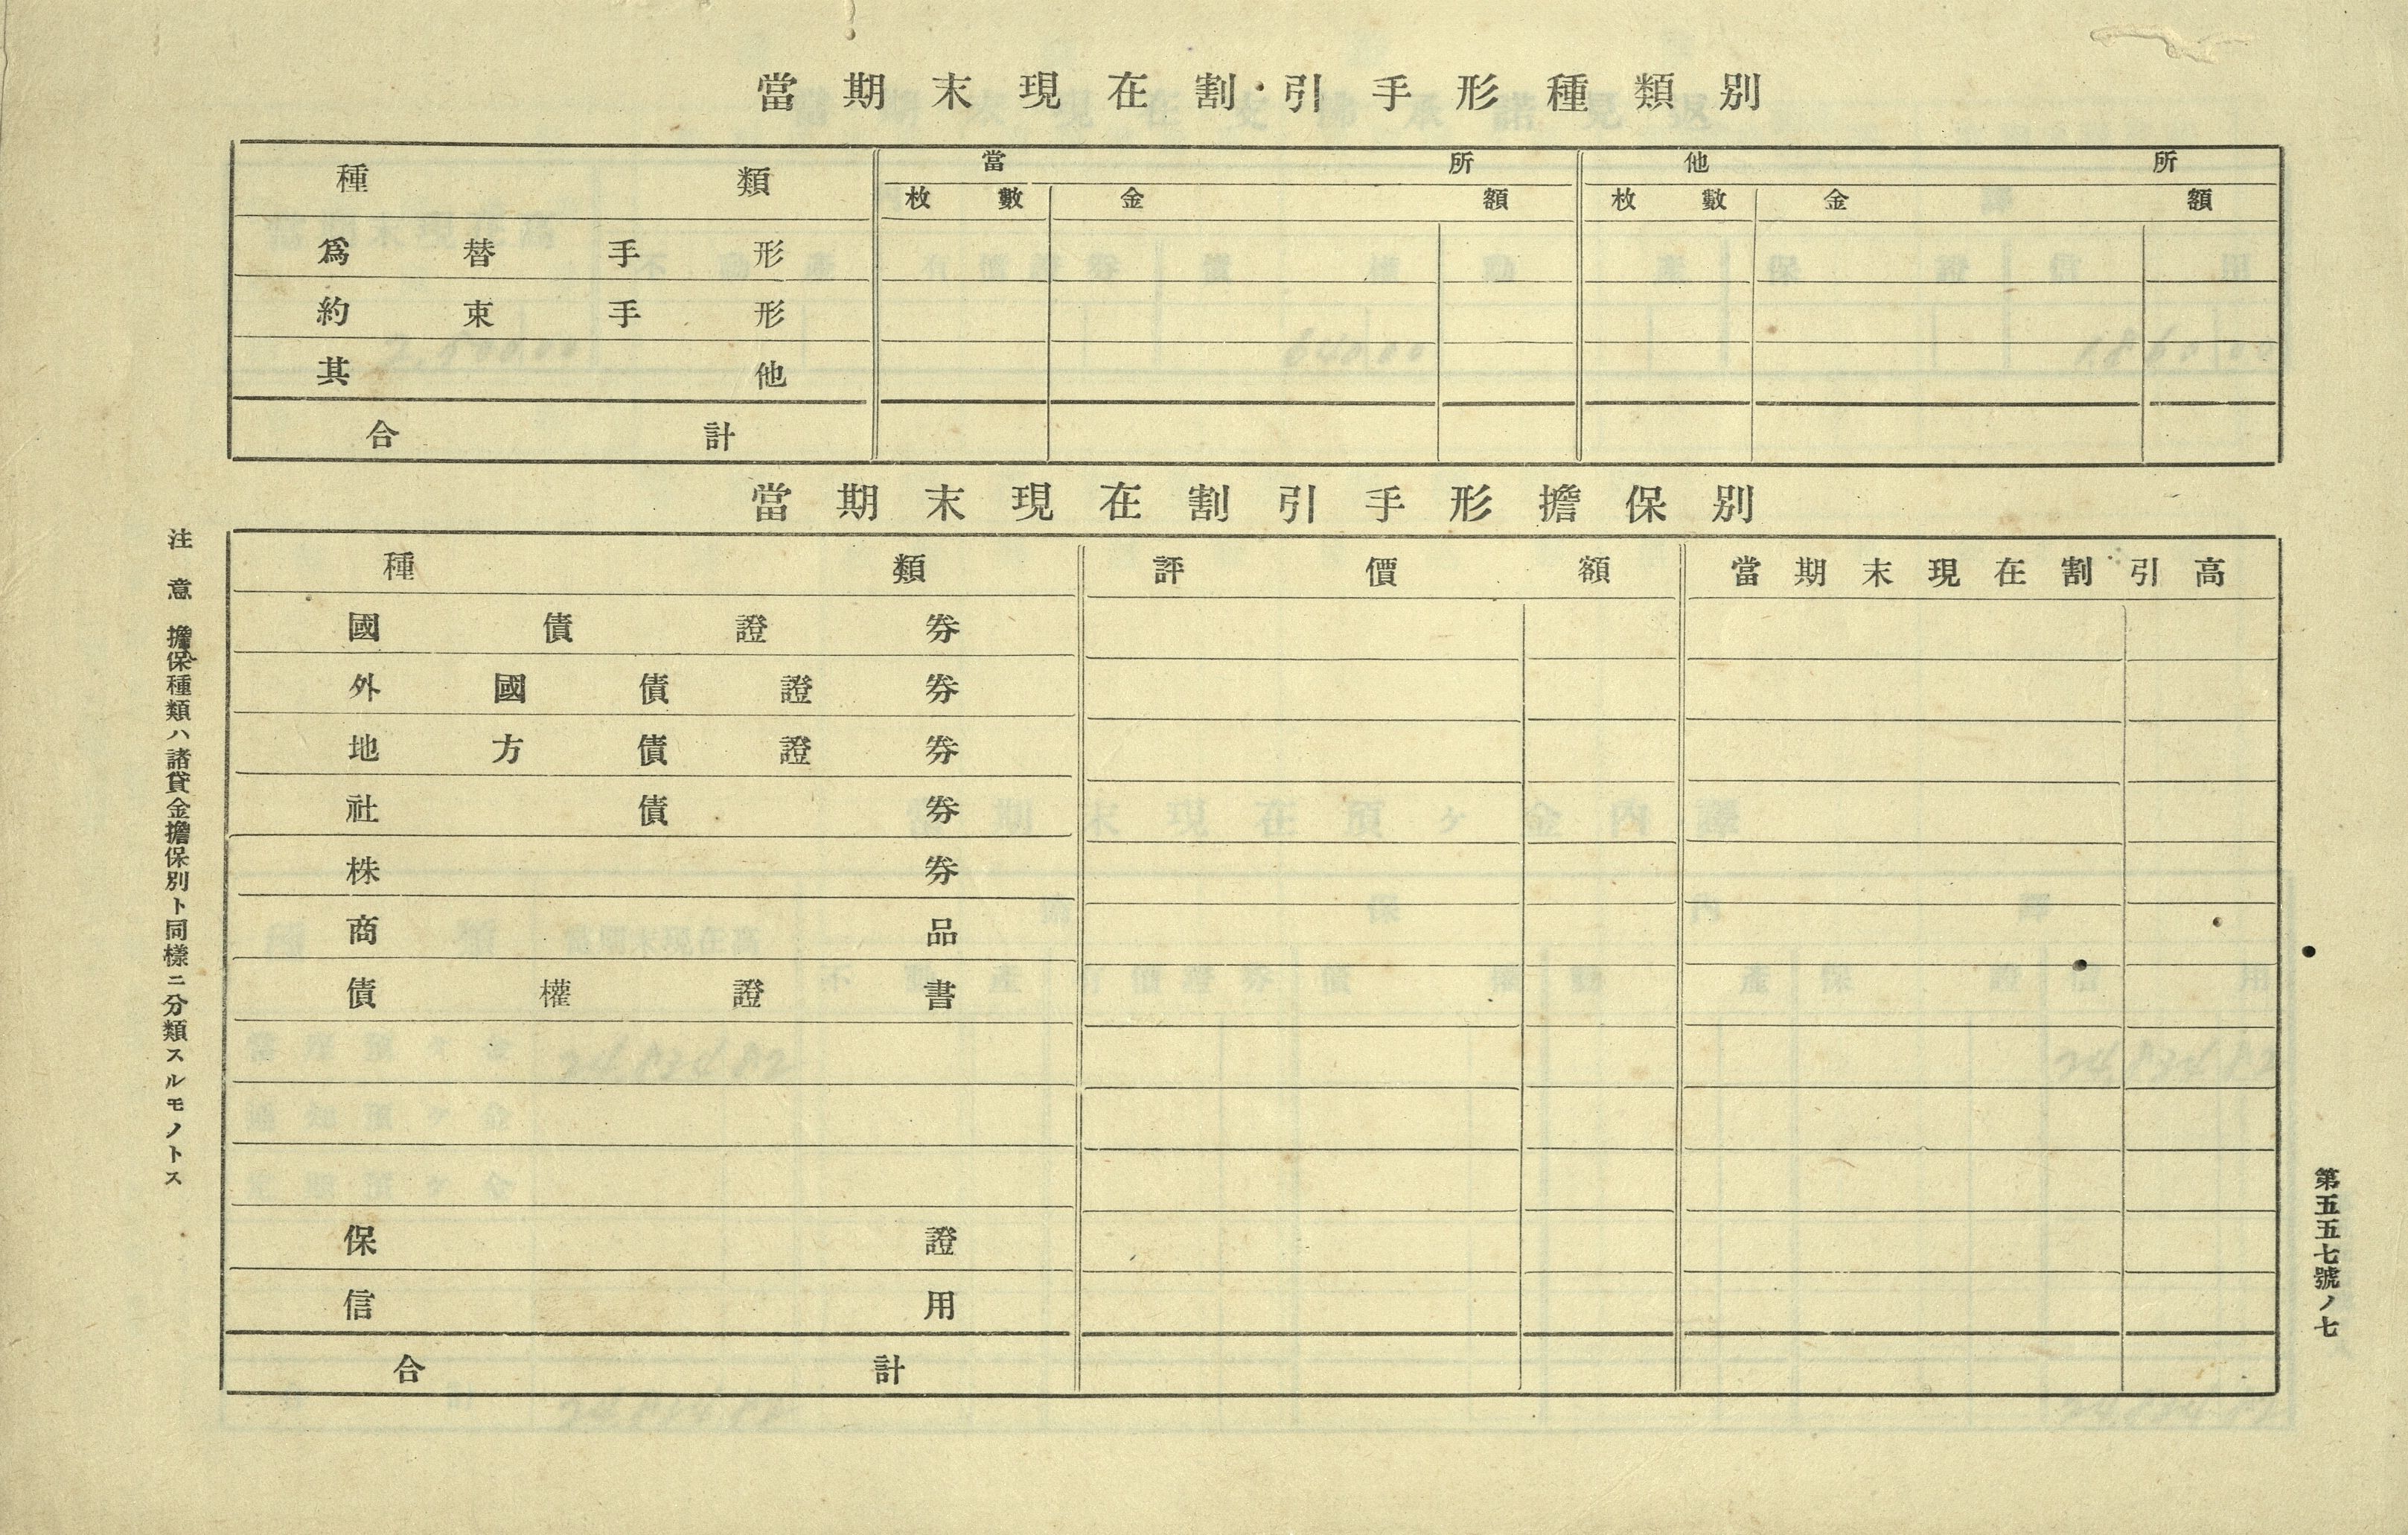 當期末現在割引手形種類別
種類 當所 他所
枚數 金額 枚數 金額
爲替手形
約束手形
其他
合計
當期末現在割引手形擔保別
種類 評價額 當期末現在割引高
國債證券
外國債證券
地方債證券
社債券
株券
商品
債權證書
保證
信用
合計
注意 擔保種類ハ諸貸金擔保別ト同樣ニ分類スルモノトス
第五五七號ノ七